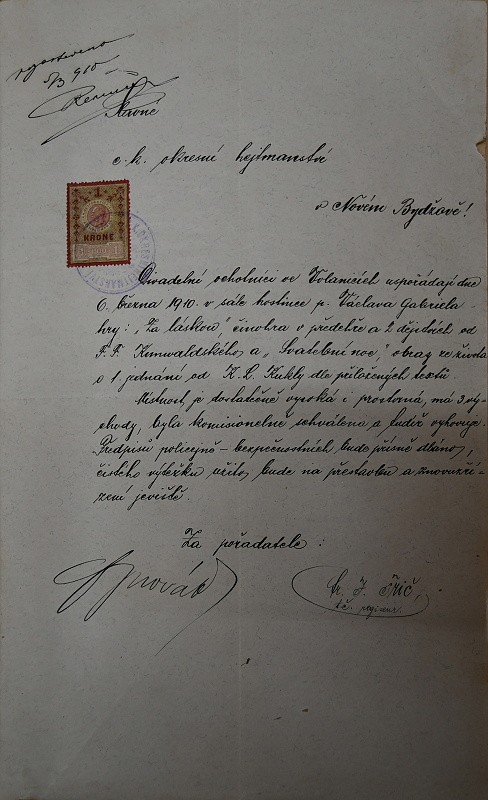 vyhotoveno
5/3 910
Slavné
c. k. okresní hejtmanství
v Novém Bydžově!
1
KRONE
Divadelní ochotnici ve Volanicích uspořádají dne
6. března 1910. v sále hostince p. Václava Gabriela
hry: „Za láskou," činohra v předehře a 2 dějstvích od
F. F. Kunwaldského, a „Svatební noc," obraz ze života
o 1. jednání od K. L. Kukly dle přiložených textů.
Místnost je dostatečně vysoká i prostorná, má 3 vý-
chody, byla komisionelně schválena a tudíž vyhovuje.
Předpisů policejně – bezpečnostních bude přísně dbáno,
čistého výtěžku užito bude na přestavbu a znovuzří-
zení jeviště.
Za pořadatele:
Novák
J. Jřič,
t. č. regisseur.